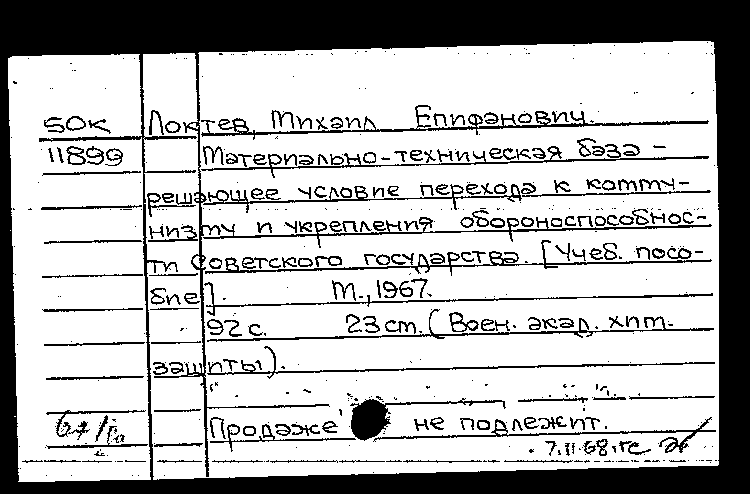 50к Локтев, Михаил Епифанович.
11899 Материально-техническая база -
решающее условие перехода к комму-
низму и укрепления обороноспособнос-
ти Советского государства. [Учеб. посо-
бие]. М., 1967.
92 с. 23 см. (Воен. акад. хим.
защиты).
Продаже не подлежит.
7.II.68.гс